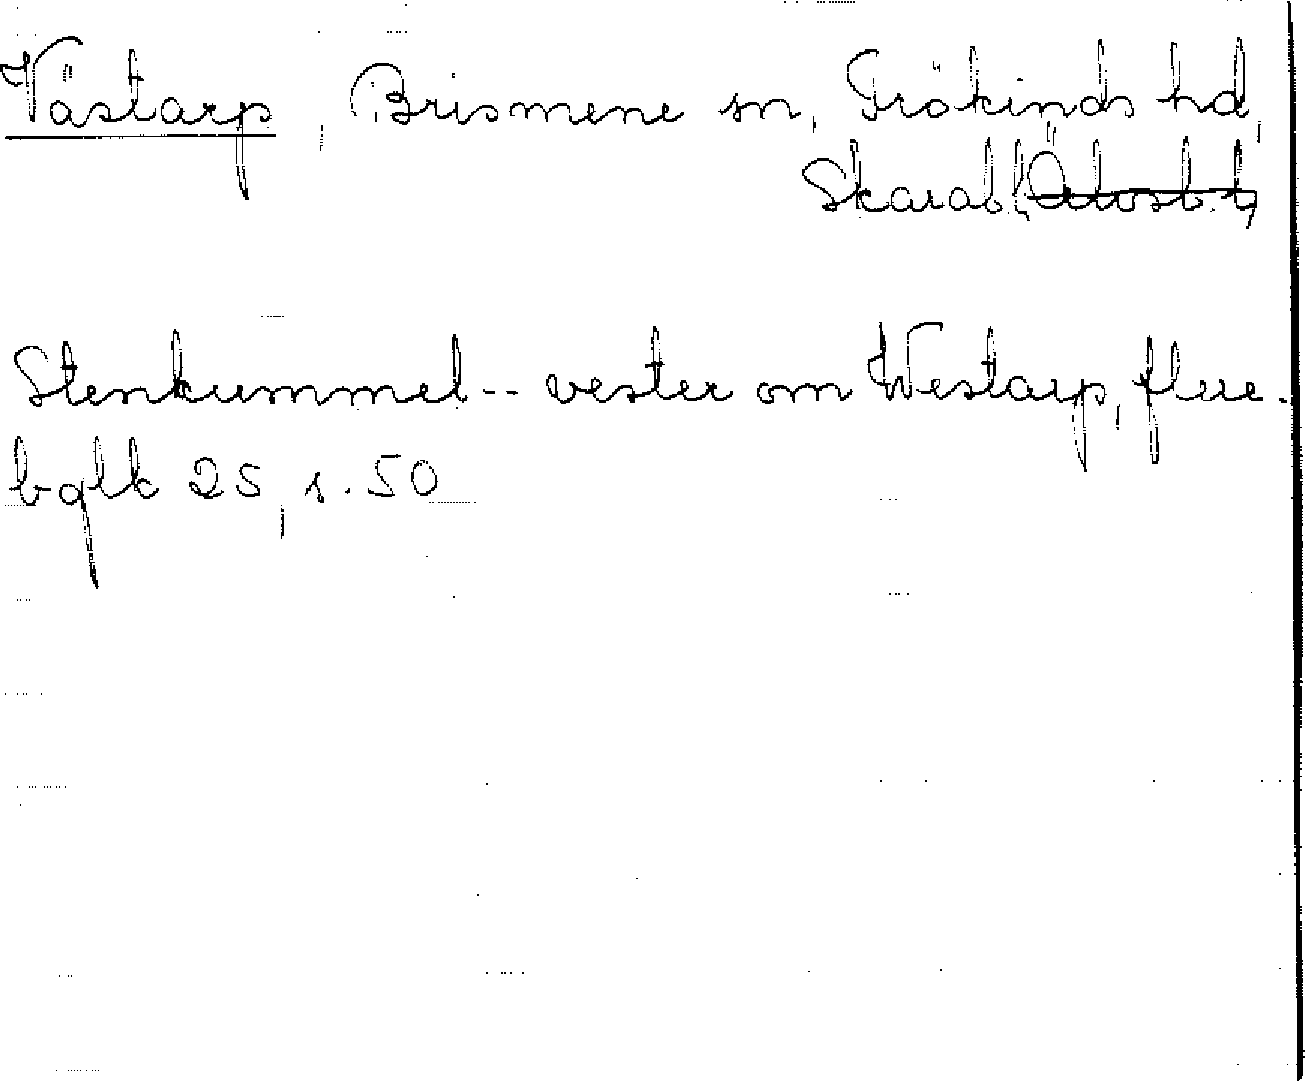 Västarp, Brismene sn, Frökinds hd,
Skarab.l,
Stenkummel -- vester om Westarp, flere.
bglk 25, s. 50